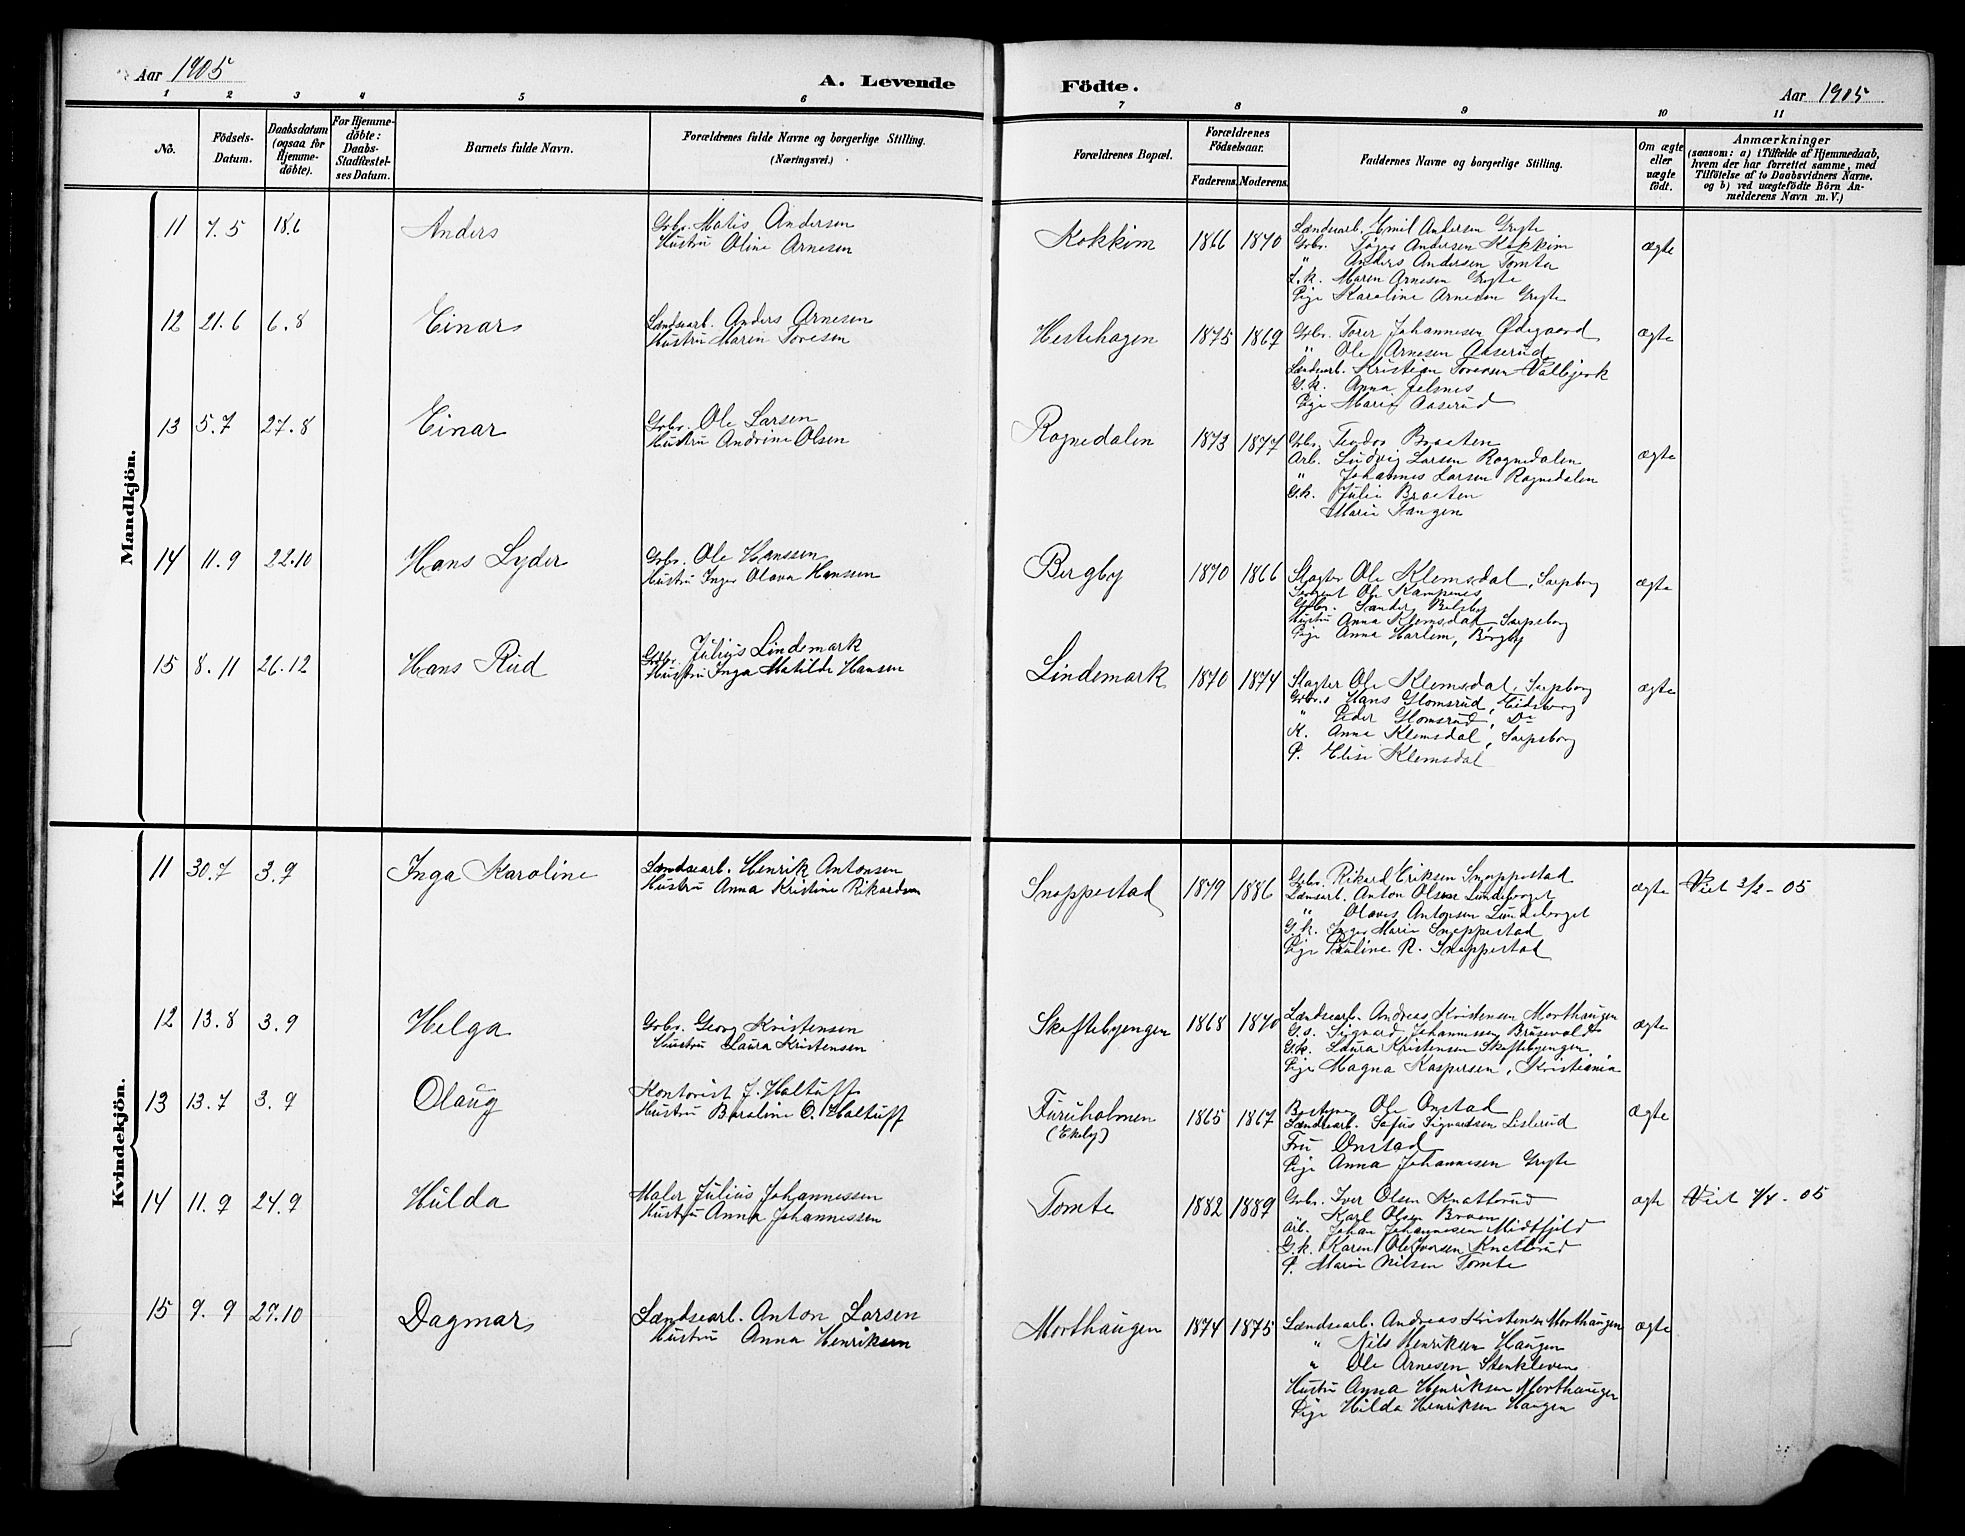 Aar 1905
A. Levende
Födte.
Aar 1905
1 2 3 4 5 6 7 8 9 10 11
No.
Födsels-Datum.
Daabsdatum (ogsaa for Hjemmedöbte).
For Hjemmedöbte: Daabs-Stadfæstelses Datum.
Barnets fulde Navn.
Forældrenes fulde Navne og borgerlige Stilling. (Næringsvei.)
Forældrenes Bopæl.
Forældrenes Födselsaar.
Faderens. Moderens.
Faddernes Navne og borgerlige Stilling.
Om ægte eller uægte födt.
Anmærkninger
(saasom: a) i Tilfælde af Hjemmedaab, hvem der har forrettet samme, med Tilföielse af to Daabsvidners Navne, og b) ved uægtefödte Börn Anmelderens Navn m. V.)
Mandkjön.
11 7.5 18.6 Anders
Grbr. Matis Andersen
Hustru Oline Arnesen
Kokkim 1866 1870
Lændsearb. Emil Andersen Grefte
Grbr. Andersen Kokkim
" Anders Andersen Tomter
G.k. Maren Arnesen Grefte
Pige Karoline Arnesen Grefte
ægte
12 21.6 6.8 Einar
Lændsearb. Anders Arnesen
Hustru Maren Toresen
Hestehagen 1875 1869
Grbr. Torer Johannesen Ødegaard
" Ole Arnesen Aaserud
Lændsearb. Kristian Toresen Valbjerk
G.k. Anna Jelsnes
Pige Marie Aaserud
ægte
13 5.7 27.8 Einar
Grbr. Ole Larsen
Hustru Andrine Olsen
Rognedalen 1873 1877
Grbr. Teodor Braaten
Arb. Ludvig Larsen Rognedalen
" Johannes Larsen Rognedalen
G.k. Julie Braaten
Marie Tangen
ægte
14 11.9 22.10 Hans Lyder
Grbr. Ole Hanssen
Hustru Inger Olava Hansen
Bergby 1870 1866
Slagter Ole Klemsdal, Sarpborg
Sergent Ole Kampenes
Grbr. Sander Belsby
Hustru Anna Klemsdal, Sarpsborg
Pige Anna Harlem, Bergby
ægte
15 8.11 26.12 Hans Rud
Grbr. Julius Lindemark
Hustru Inga Matilde Hansen
Lindemark 1870 1874
Slagter Ole Klemsdal, Sarpborg
Grbr. Hans Glomsrud, Eidsberg
" Peder Glomsrud, Do
K. Anna Klemsdal, Sarpsborg
P. Elise Klemsdal
ægte
Kvindekjön.
11 30.7 3.9 Inga Karoline
Lændsearb. Henrik Antonsen
Hustru Anna Kristine Rikardsen
Snoppestad 1879 1886
Grbr. Rikard Eriksen Snoppestad
Lænsarb. Anton Olsen Lundeborget
" Olaves Antonsen Lundeborget
G.k. Inger Marie Snoppestad
Pige Pauline R. Snoppestad
ægte Viet 3/2-05
12 13.8 3.9 Helga
Grbr. Georg Kristensen
Hustru Laura Kristensen
Skoftebyengen 1868 1870
Lændsearb. Andreas Kristensen Morthaugen
G.s. Sigvard Johannessen Brusevold
G.k. Laura Kristensen Skoftebyengen,
Pige Magna Kaspersen, Kristiania
ægte
13 13.7 3.9 Olaug
Kontorist J. Holtuff
Hustru Beroline O. Holtuff
Furuholmen (Ekely) 1865 1867
Bestyrer Ole Onstad
Lændsearb. Sofus Sigvardsen Lislerud
Fru Onstad
Pige Anna Johannesen Grefte
Ægte
14 11.9 24.9 Hulda
Maler Julius Johannessen
Hustru Anna Johannessen
Tomte 1882 1889
Grbr. Iver Olsen Knatterud
" Karl Olsen Broen
Arb. Johan Johannesen Midtfjeld
G.k. Karen Iversen Knatterud
P. Marie Nilsen Tomte
ægte Viet 4/4-05
15 9.9 29.10 Dagmar
Lændsearb. Anton Larsen
Hustru Anna Henriksen
Morthaugen 1874 1875
Lændsearb. Andreas Kristensen Morthaugen
" Nils Henriksen Haugen
" Ole Arnesen Stenkleven
Hustru Anna Henriksen Morthaugen
Pige Hilda Henriksen Haugen
ægte